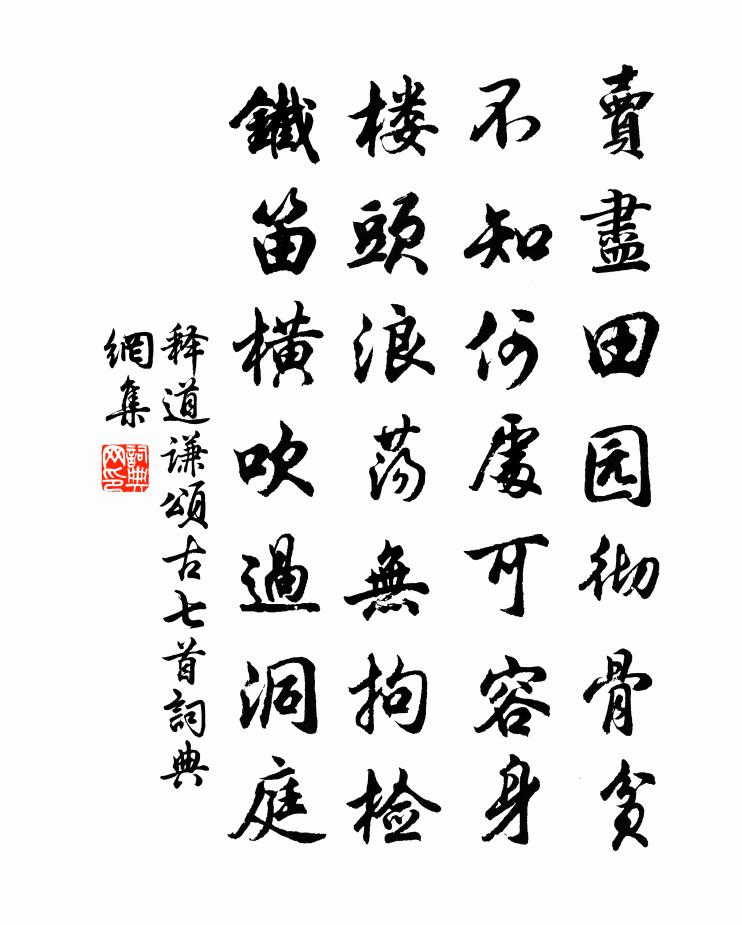 賣盡田园彻骨貧
不知何處可容身
楼頭浪荡無拘检
鐵笛横吹過洞庭
释道谦頌古七首詞典
網集
詞典
网印